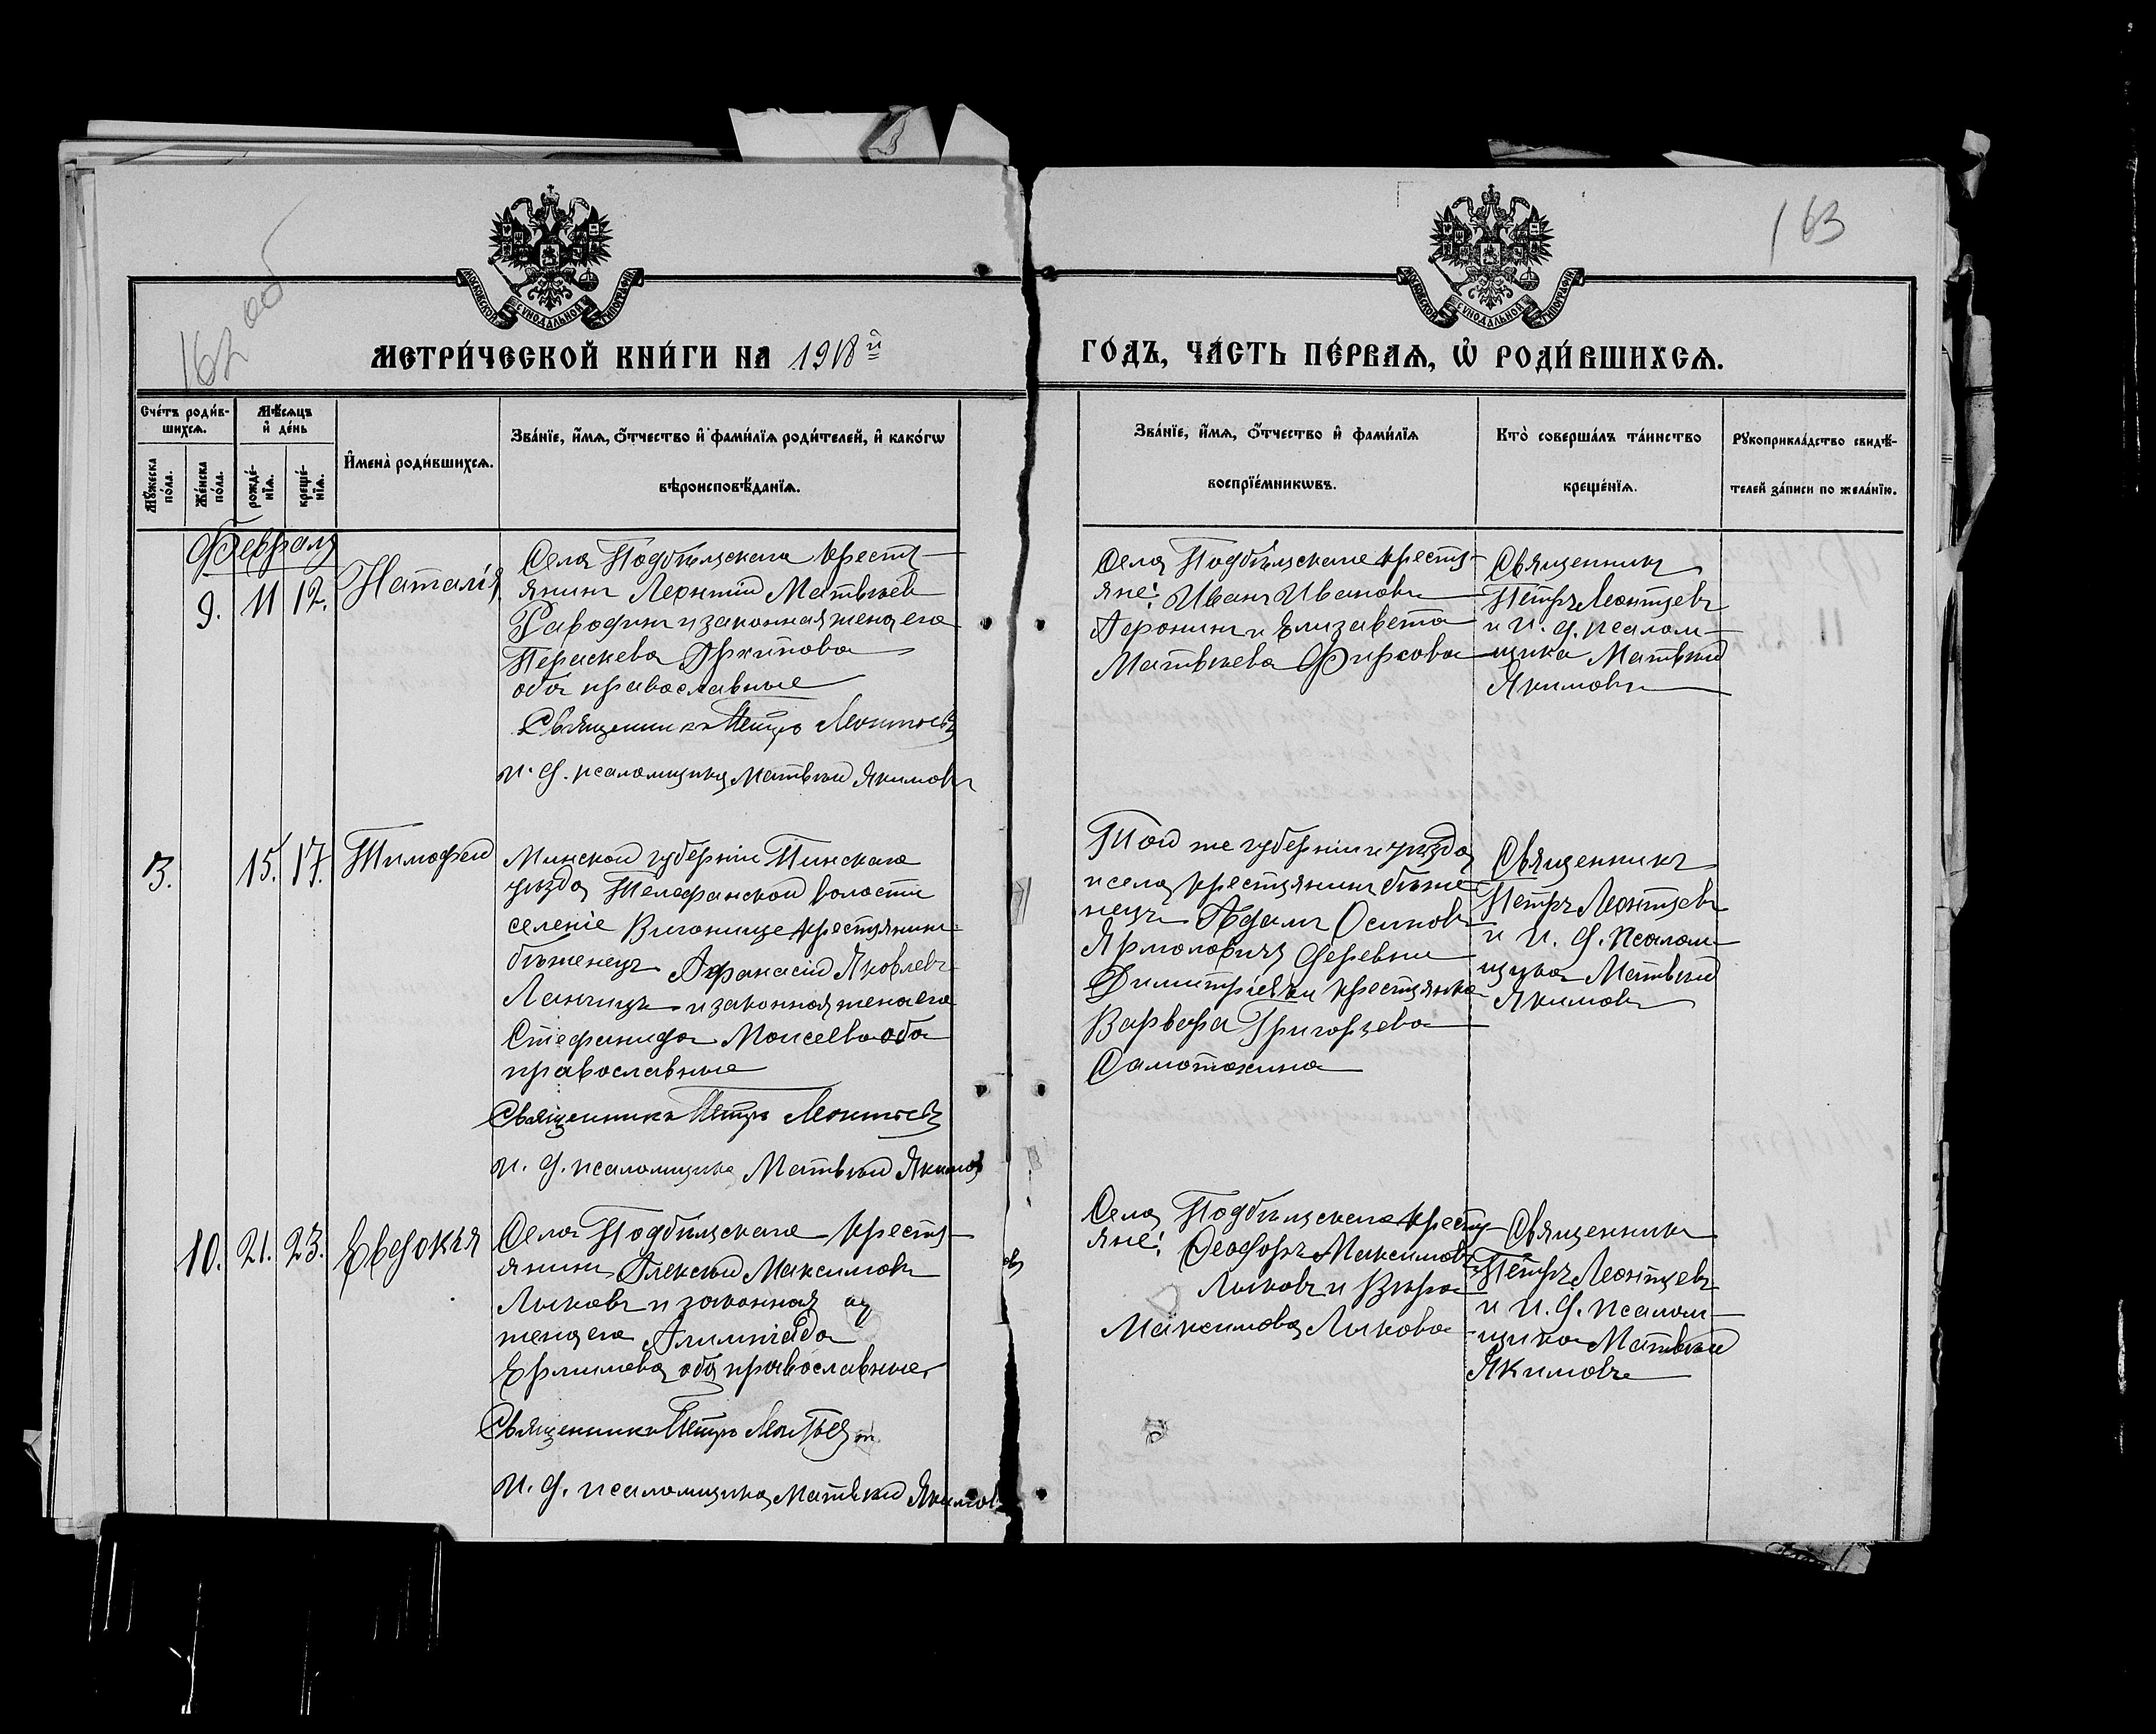 162 об
163
МОСКОВСКОЙ СѴНОДАЛЬНОЙ ТИПОГРАФІИ
МОСКОВСКОЙ СѴНОДАЛЬНОЙ ТИПОГРАФІИ
МЕТРИ́ЧЕСКОЙ КНИ́ГИ НА 1918й
ГО́ДЪ, ЧА́СТЬ ПЕ́РВАѦ, Ѽ РОДИ́ВШИХСѦ.
Сче́тъ роди́в-
шихсѧ.
Мꙋ́жеска по́ла.
Же́нска по́ла.
Мѣ́сѧцъ
и҆ де́нь
рожде́-
нїѧ.
креще́-
нїѧ.
И҆мена̀ роди́вшихсѧ.
Зва́нїе, и҆́мѧ, ѻ҆́тчество и҆ фами́лїѧ роди́телей, и҆ како́гѡ
вѣроисповѣ́данїѧ.
Зва́нїе, и҆́мѧ, ѻ҆́тчество и҆ фами́лїѧ
воспрїе́мникѡвъ.
Кто̀ соверша́лъ та́инство
креще́нїѧ.
Рꙋкоприкла́дство свидѣ́-
телей за́писи по жела́нїю.
Февраля
9.
11
12.
Наталія
Села Подбѣльскаго кресть-
янинъ Леонтій Матвѣевъ
Раводинъ и законная жена его
Параскева Архипова
оба православные
Священникъ Петръ Леонтьевъ
и. д. псаломщика Матвѣй Якимовъ
Села Подбѣльскаго кресть-
яне: Иванъ Ивановъ
Афонинъ и Елизавета
Матвѣева Фирсова
Священникъ
Петръ Леонтьевъ
и И. д. псалом-
щика Матвѣй
Якимовъ
3.
15.
17.
Тимофей
Минской губерніи Пинскаго
уѣзда Телеханской волости
селеніе Выгонище крестьянинъ
бѣженецъ Афанасій Яковлевъ
Ланчицъ и законная жена его
Стефанида Моисеева оба
православные
Священникъ Петръ Леонтьевъ
и. д. псаломщика Матвѣй Якимовъ
Той же губерніи и уѣзда
и села крестьянинъ бѣже-
нецъ Адамъ Осиповъ
Ярмоловичъ деревни
Димитріевки крестьянка
Варвара Григорьева
Самотожина
Священникъ
Петръ Леонтьевъ
и И. д. псалом-
щика Матвѣй
Якимовъ
10.
21.
23.
Евдокія
Села Подбѣльскаго кресть-
янинъ Алексѣй Максимовъ
Лыковъ и законная
жена его Алимпіада
Ермилова оба православные
Священникъ Петръ Леонтьев
и. д. псаломщика Матвѣй Якимовъ
Села Подбѣльскаго кресть-
яне: Ѳеодоръ Максимовъ
Лыковъ и Вѣра
Максимова Лыкова
Священникъ
Петръ Леонтьевъ
и И. д. псалом-
щика Матвѣй
Якимовъ